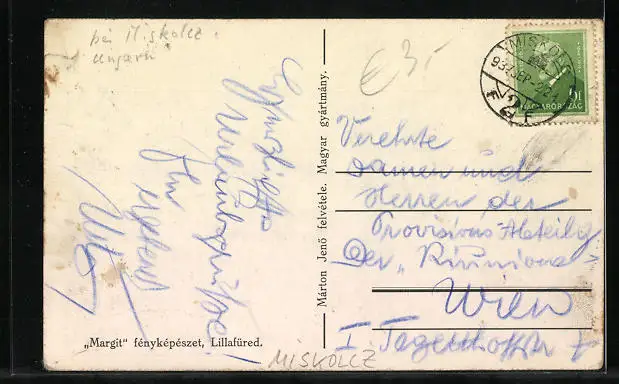 bei Miskolcz
Ungarn
€ 3,-
MISKOLC
2
MAGYARORSZÁG
Herzlichste
Urlaubsgrüße!
Ihr
ergebener
Márton Jenő felvétele. Magyar gyártmány.
Verehrte
Damen und
Herren der
Provisions Abteilg
der „Riunione"
Wien
I. Tegetthoffstr 7
„Margit" fényképészet, Lillafüred.
MISKOLCZ